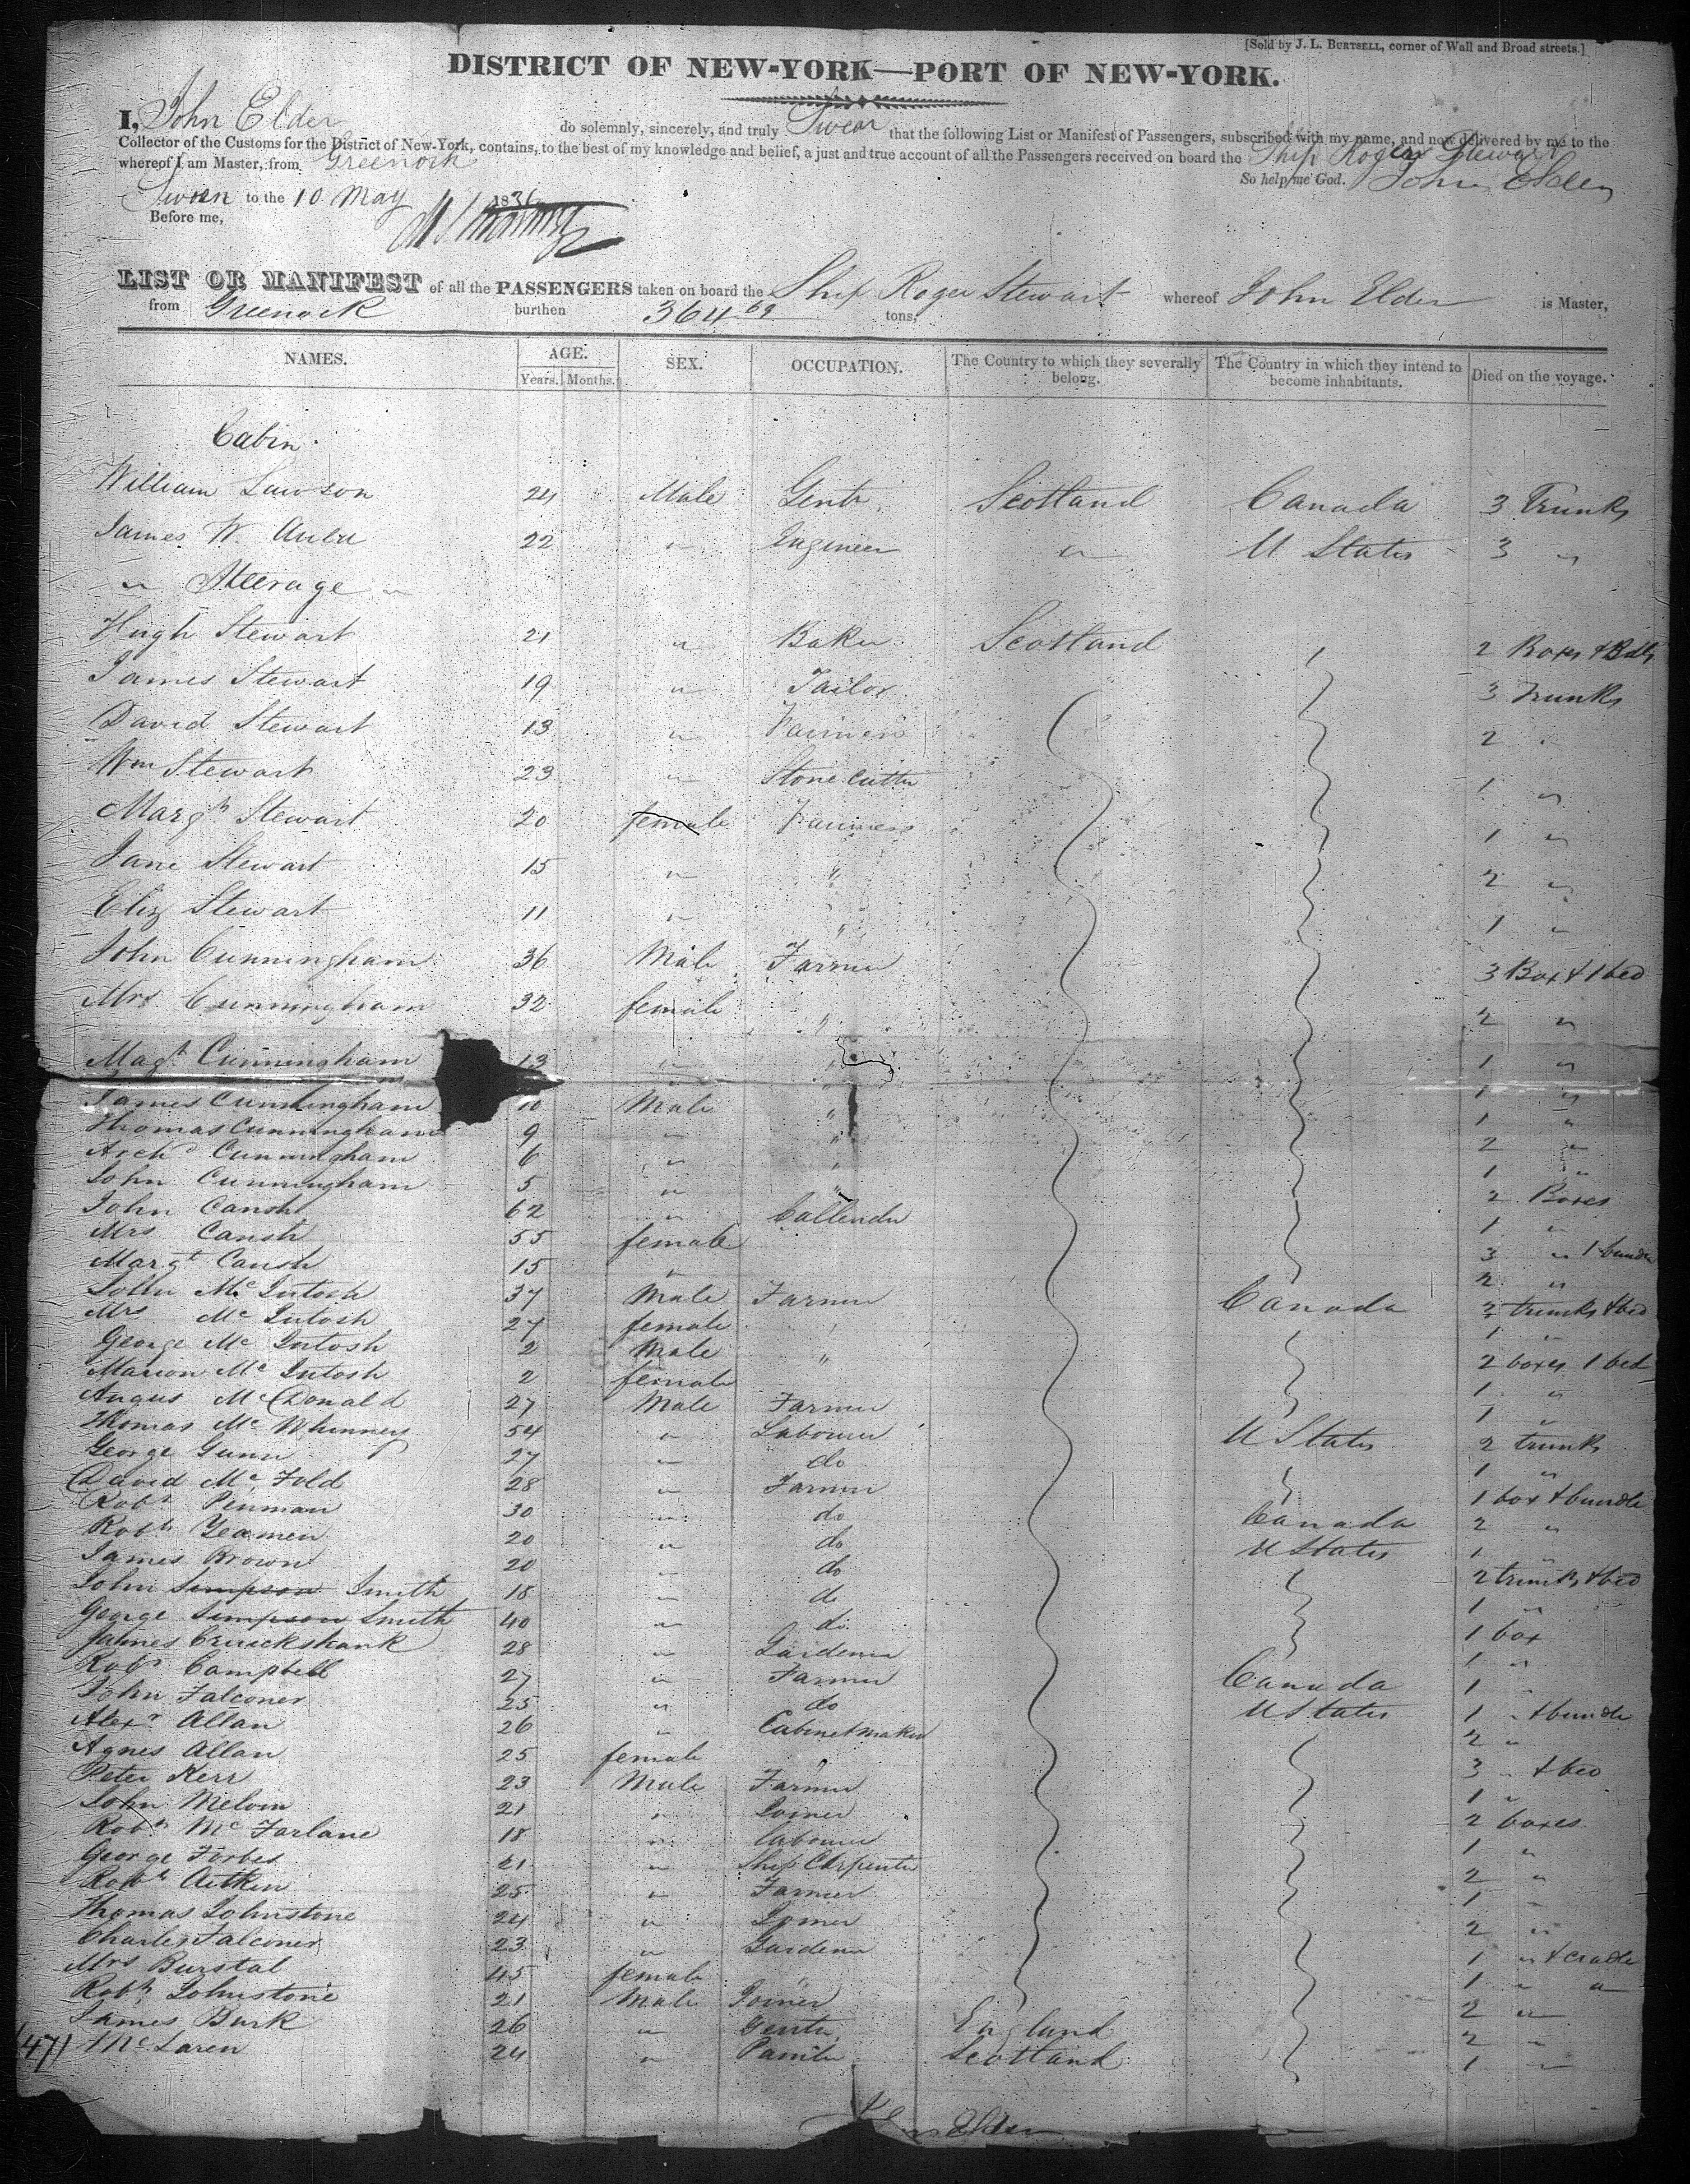 [Sold by J. L. BURTSELL, corner of Wall and Broad streets.]
DISTRICT OF NEW-YORK—PORT OF NEW-YORK.
I, John Elder do solemnly, sincerely, and truly Swear that the following List or Manifest of Passengers, subscribed with my name, and now delivered by me to the
Collector of the Customs for the District of New-York, contains, to the best of my knowledge and belief, a just and true account of all the Passengers received on board the Ship Roger Stewart
whereof I am Master, from Greenock
So help me God. John Elder
Sworn to the 10 May 1836
Before me,
LIST OR MANIFEST of all the PASSENGERS taken on board the Ship Roger Stewart whereof John Elder is Master,
from Greenock burthen 364 69 tons,
NAMES. AGE. SEX. OCCUPATION. The Country to which they severally belong. The Country in which they intend to become inhabitants. Died on the voyage.
Years. Months.
Cabin
William Lawson 24 Male Gentn Scotland Canada 3 Trunks
James W. 22 " Engineer " U States 3 "
" Steerage "
Hugh Stewart 21 " Baker Scotland 2 Boxes &
James Stewart 19 " Tailor 3 Trunks
David Stewart 13 " 2 "
Wm Stewart 23 " Stone Cutter 1 "
Margt Stewart 20 female 1 "
Jane Stewart 15 " " 2 "
Eliz Stewart 11 " " 1 "
John Cunningham 36 Male Farmer 3 Box & 1 bed
Mrs Cunningham 32 female " 2 "
Magt Cunningham 13 " " 1 "
James Cunningham 10 Male " 1 "
Thomas Cunningham 9 " " 1 "
Archd Cunningham 6 " " 2 "
John Cunningham 5 " " 1 "
John 62 " Callender 2 Boxes
Mrs 55 female 1 "
Margt 15 " 3 " 1 bundle
John McIntosh 37 Male Farmer Canada 2 "
Mrs McIntosh 27 female 2 trunks & bed
George McIntosh 2 Male " 1 "
Marion McIntosh 2 female 2 boxes 1 bed
Angus McDonald 27 Male Farmer 1 "
Thomas McWhinney 54 " Labourer U States 1 "
George Gunn 27 " do 2 trunks
David McFold 28 " Farmer 1 "
Robt Penman 30 " do Canada 1 box & bundle
Robt Yeamen 20 " do U States 2 "
James Brown 20 " do 1 "
John Simpson Smith 18 " do 2 trunks & bed
George Simpson Smith 40 " do 1 "
James Cruickshank 28 " Gardener 1 box
Robt Campbell 27 " Farmer Canada 1 "
John Falconer 25 " do U States 1 "
Alexr Allan 26 " Cabinet maker 1 " & bundle
Agnes Allan 25 female " 2 "
Peter Kerr 23 Male Farmer 3 " & bed
John Melvin 21 " Joiner 1 "
Robt McFarlane 18 " Labourer 2 boxes
George Forbes 21 " Ship Carpenter 1 "
Robt Aitken 25 " Farmer 2 "
Thomas Johnstone 24 " Joiner 1 "
Charles Falconer 23 " Gardener 2 "
Mrs Burstal 45 female 1 " & cradle
Robt Johnstone 21 Male Joiner 1 " "
James Burk 26 " Gentn England 2 "
(47) McLaren 24 " Scotland 2 "
1 "
John Elder